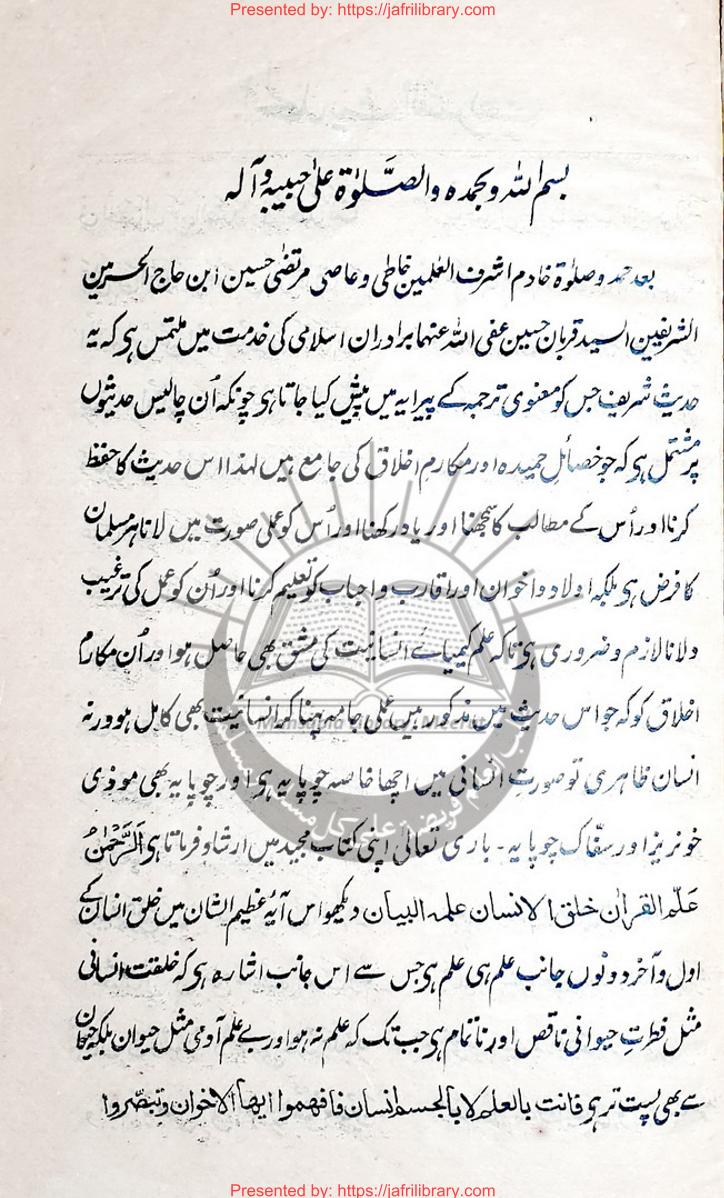 Presented by: https://jafrilibrary.com
بسم اللہ وبحمدہ والصَّلوٰۃ علیٰ حبیبہٖ وآلہ
بعد حمد وصلوٰۃ خادم اشرف العٰلمین خاطی وعاصی مرتضیٰ حسین ابن حاج الحرمین
الشریفین السید قربان حسین عفی اللہ عنہما برادران اسلامی کی خدمت میں ملتمس ہی کہ یہ
حدیث شریف جس کو معنوی ترجمہ کے پیرایہ میں پیش کیا جاتا ہی چونکہ اُن چالیس حدیثوں
پر مشتمل ہی کہ جو خصائلِ حمیدہ اور مکارمِ اخلاق کی جامع ہیں لہٰذا اس حدیث کا حفظ
کرنا اور اُس کے مطالب کا سمجھنا اور یاد رکھنا اور اُس کو عملی صورت میں لانا ہر مسلمان
کا فرض ہی بلکہ اولاد واخوان اور اقارب واحباب کو تعلیم کرنا اور اُن کو عمل کی ترغیب
دلانا لازم وضروری ہی تاکہ علم کیمیائے انسانیت کی مشق بھی حاصل ہو اور اُن مکارم
اخلاق کو کہ جو اس حدیث میں مذکور ہیں عملی جامہ پہنا کر انسانیت بھی کامل ہو ورنہ
انسان ظاہری تو صورتِ انسانی میں اچھا خاصہ چوپایہ ہی اور چوپایہ بھی موذی
خونریز اور سفّاک چوپایہ۔ باری تعالیٰ اپنی کتاب مجید میں ارشاد فرماتا ہی اَلرَّحْمٰنُ
عَلّم القراٰن خلق الانسان علمہ البیان دیکھو اس آیۂ عظیم الشان میں خلق انسان کے
اول وآخر دونوں جانب علم ہی علم ہی جس سے اس جانب اشارہ ہی کہ خلقت انسانی
مثل فطرتِ حیوانی ناقص اور ناتمام ہی جب تک کہ علم نہ ہو اور بے علم آدمی مثل حیوان بلکہ حیوان
سے بھی پست تر ہی فانت بالعلم لا بالجسم انسان فافهموا ایها الاخوان وتبصّروا
Mansabia Library Meerut
طلب العلم فریضة علی کل مسلم
Presented by: https://jafrilibrary.com